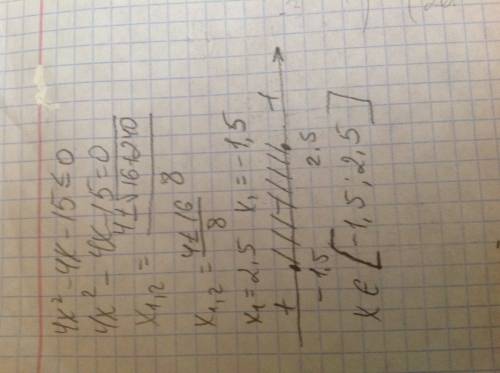 4x² - 4x - 15 ≤ 0
4x² - 4x - 15 = 0
x₁,₂ = (4 ± √16 + 240) / 8
x₁,₂ = (4 ± 16) / 8
x₁ = 2,5 x₁ = -1,5
+ - +
-1,5 2,5
x ∈ [-1,5 ; 2,5]